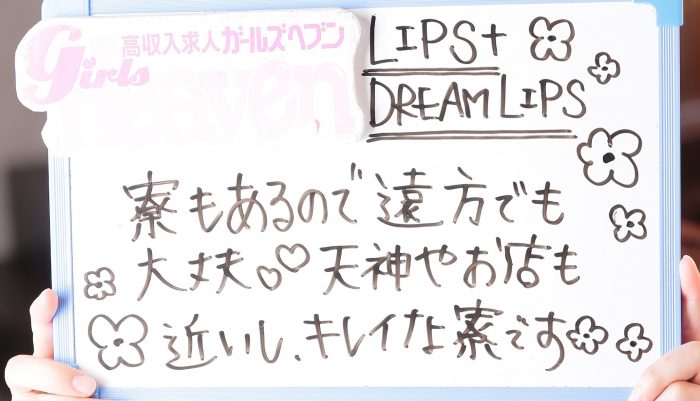 高収入求人ガールズヘブン
Girls
heaven
LIPS+
DREAM LIPS
寮もあるので遠方でも
大丈夫。天神やお店も
近いし、キレイな寮です